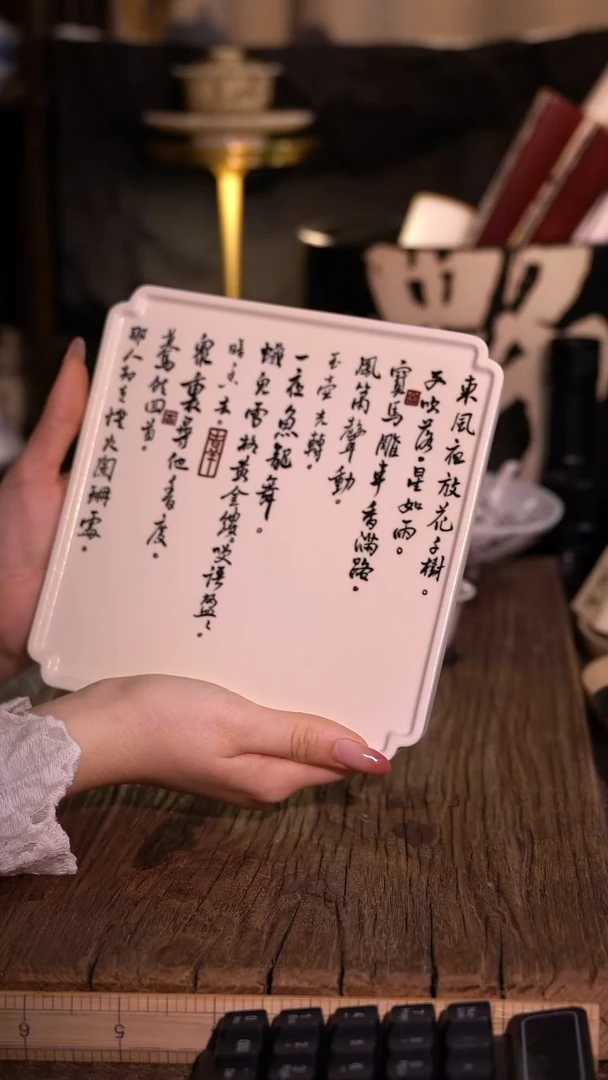 東風夜放花千樹。
更吹落。星如雨。
寶馬雕車香滿路。
鳳簫聲動。
玉壺光轉。
一夜魚龍舞。
蛾兒雪柳黃金縷。笑語盈々。
暗香去。
眾裏尋他千百度。
驀然回首。
那人卻在燈火闌珊處。
6 5